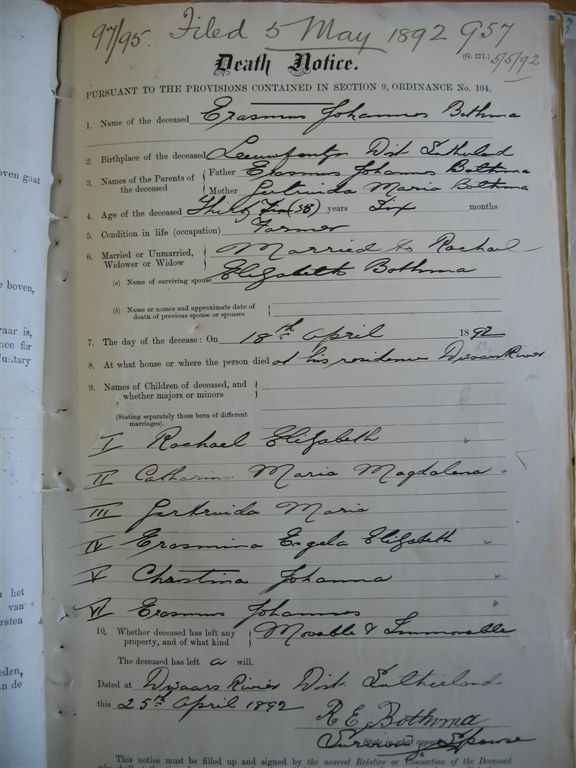 97/95. Filed 5 May 1892 957
(G. 271.) 5/5/92
Death Notice.
PURSUANT TO THE PROVISIONS CONTAINED IN SECTION 9, ORDINANCE No. 104.
1. Name of the deceased Erasmus Johannes Bothma
2. Birthplace of the deceased Leeuwfontyn Dist Sutherland
3. Names of the Parents of the deceased { Father Erasmus Johannes Bothma
Mother Gertruida Maria Bothma
4. Age of the deceased (38) years Six months
5. Condition in life (occupation) Farmer
6. Married or Unmarried, Widower or Widow { Married to Rachael
(a) Name of surviving spouse Elizabeth Bothma
(b) Name or names and approximate date of death of previous spouse or spouses {
7. The day of the decease: On 18th April 1892
8. At what house or where the person died at his residence Dwaars River
9. Names of Children of deceased, and whether majors or minors {
(Stating separately those born of different marriages).
I Rachael Elizabeth
II Catharina Maria Magdalena
III Gertruida Maria
IV Erasmina Engela Elizabeth
V Christina Johanna
VI Erasmus Johannes
10. Whether deceased has left any property, and of what kind { Movable & Immovable
The deceased has left a will.
Dated at Dwaars River Dist. Sutherland
this 25th April 1892
R E Bothma
Surviving Spouse
State in what capacity
This notice must be filled up and signed by the nearest Relative or Connection of the Deceased
oven goat
e boven,
vaar is,
ce for
het
van
rsten
eden,
n de